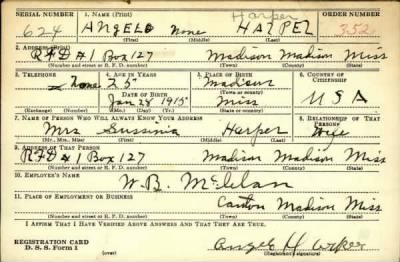 Harper
SERIAL NUMBER 1. NAME (Print) ORDER NUMBER
624 ANGELO None HARPEL 352
(First) (Middle) (Last)
2. ADDRESS (Print)
RFD #1 Box 127 Madison Madison Miss
(Number and street or R. F. D. number) (Town) (County) (State)
3. TELEPHONE 4. AGE IN YEARS 5. PLACE OF BIRTH 6. COUNTRY OF CITIZENSHIP
None 25 Madison
DATE OF BIRTH (Town or county) USA
Jan 28 1915 Miss
(Exchange) (Number) (Mo.) (Day) (Yr.) (State or country)
7. NAME OF PERSON WHO WILL ALWAYS KNOW YOUR ADDRESS 8. RELATIONSHIP OF THAT PERSON
Mrs Harper Wife
(Mr., Mrs., Miss) (First) (Middle) (Last)
9. ADDRESS OF THAT PERSON
RFD #1 Box 127 Madison Madison Miss
(Number and street or R. F. D. number) (Town) (County) (State)
10. EMPLOYER'S NAME
W.B.
11. PLACE OF EMPLOYMENT OR BUSINESS
Canton Madison Miss
(Number and street or R. F. D. number) (Town) (County) (State)
I AFFIRM THAT I HAVE VERIFIED ABOVE ANSWERS AND THAT THEY ARE TRUE.
REGISTRATION CARD
D. S. S. Form 1 (over) (Registrant's signature)